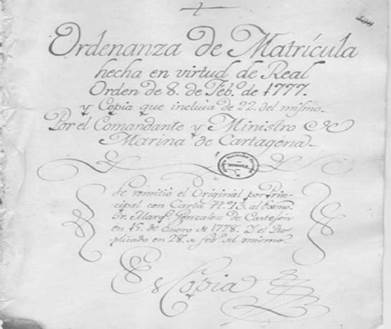 Ordenanza de Matrícula
hecha en virtud de Real
Orden de 8. de Feb.º de 1777.
y Copia que incluia de 22. del mismo
Por el Comandante y Ministro de
Marina de Cartagena
Se remitió el Original por Prin-
cipal con Carta N. 73. al
Gonzalez de Castejon
en 15. de Enero de 1778. Y el Du-
plicado en 28. del mismo
Es Copia